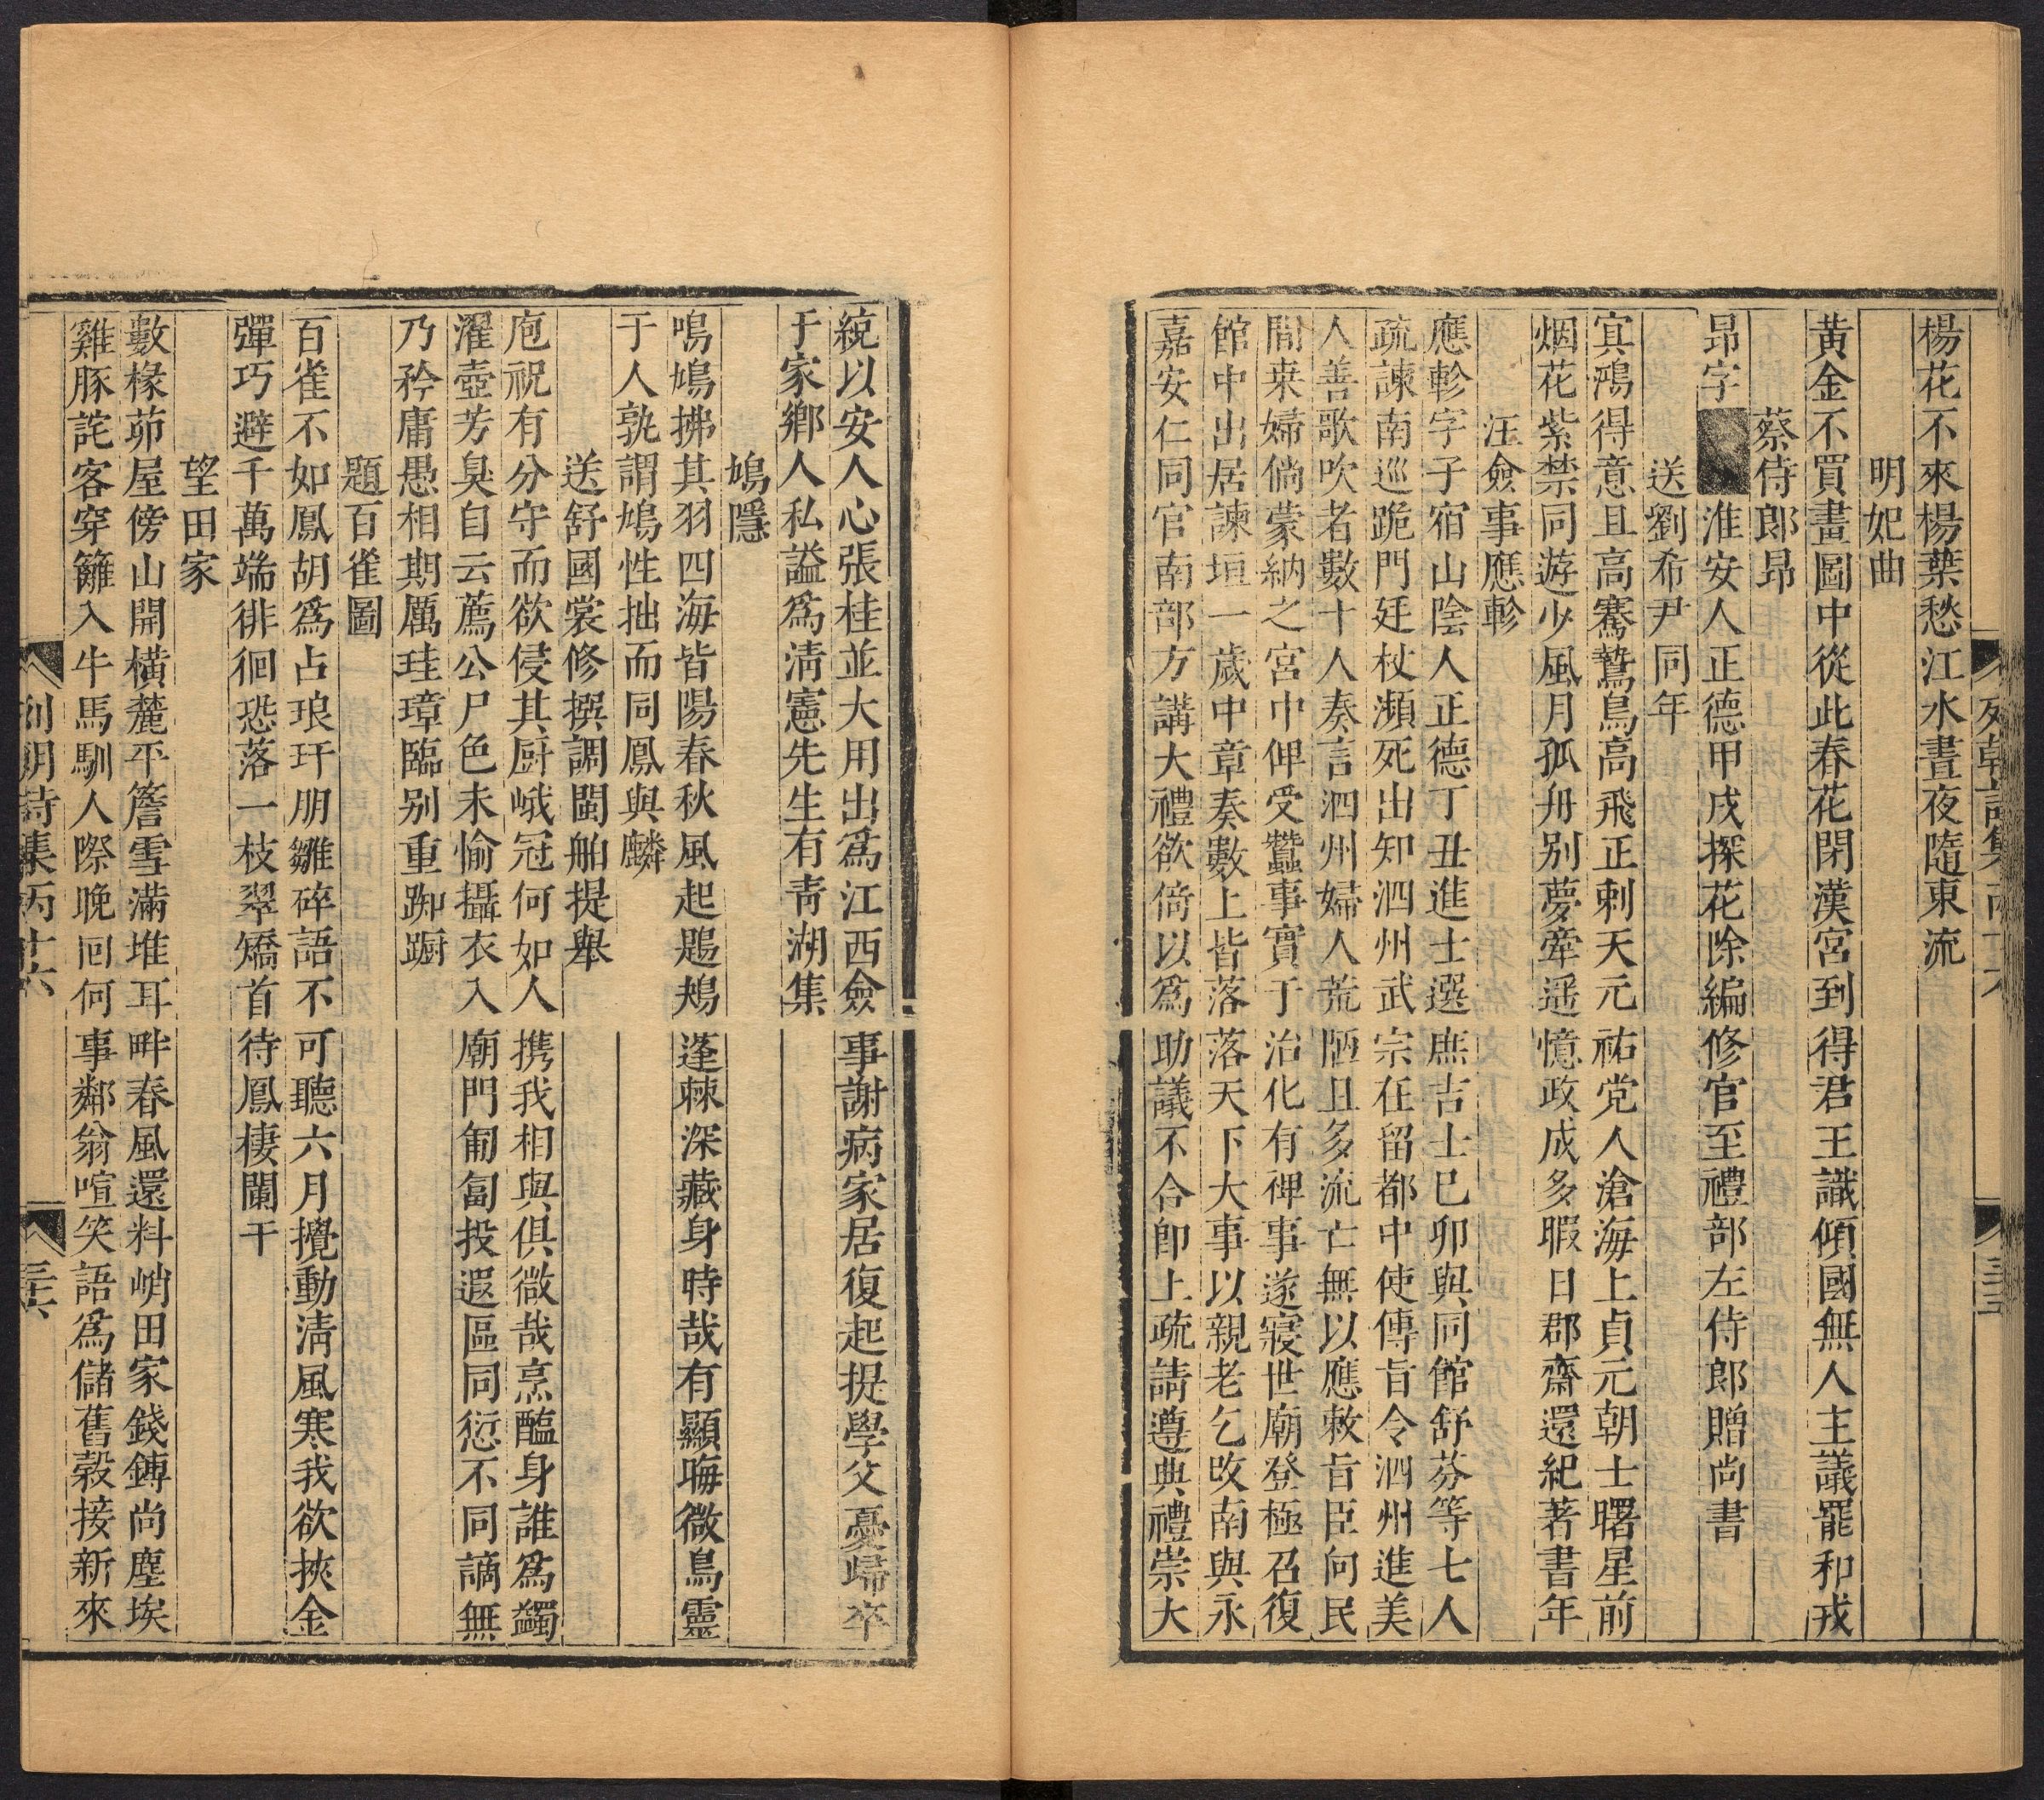 列朝詩集丙十六
三十五
楊花不來楊葉愁江水晝夜隨東流
明妃曲
黃金不買畫圖中從此春花閉漢宮到得君王識傾國無人主議罷和戎
蔡侍郎昂
昂字淮安人正德甲戌探花除編修官至禮部左侍郎贈尚書
送劉希尹同年
㝠鴻得意且高騫鷙鳥高飛正刺天元祐党人滄海上貞元朝士曙星前
烟花紫禁同遊少風月孤舟别夢牽遥憶政成多暇日郡齋還紀著書年
汪僉事應軫
應軫字子宿山陰人正德丁丑進士選庶吉士巳卯與同館舒芬等七人
疏諫南巡跪門廷杖瀕死出知泗州武宗在留都中使傳旨令泗州進美
人善歌吹者數十人奏言泗州婦人荒陋且多流亡無以應敕旨臣向民
間桒婦倘蒙納之宮中俾受蠶事實于治化有裨事遂寢世廟登極召復
館中出居諫垣一歲中章奏數上皆落落天下大事以親老乞改南與永
嘉安仁同官南部方講大禮欲倚以爲助議不合卽上疏請遵典禮崇大
統以安人心張桂並大用出爲江西僉事謝病家居復起提學父憂歸卒
于家鄉人私諡爲淸憲先生有靑湖集
鳩隱
鳴鳩拂其羽四海皆陽春秋風起鶗鴂蓬棘深藏身時哉有顯晦微鳥靈
于人孰謂鳩性拙而同鳳與麟
送舒國裳修撰謫閩舶提舉
庖祝有分守而欲侵其厨峨冠何如人携我相與俱微哉烹醢身誰爲蠲
濯壺芳臭自云薦公尸色未愉攝衣入廟門匍匐投遐區同愆不同謫無
乃矜庸愚相期厲珪璋臨别重踟蹰
題百雀圖
百雀不如鳳胡爲占琅玕朋雛碎語不可聽六月攪動淸風寒我欲挾金
彈巧避千萬端徘徊恐落一枝翠矯首待鳳棲闌干
望田家
數椽茆屋傍山開橫麓平簷雪滿堆耳畔春風還料峭田家錢鎛尚塵埃
雞豚詫客穿籬入牛馬馴人際晚囘何事鄰翁喧笑語爲儲舊穀接新來
列朝詩集丙十六
三十六